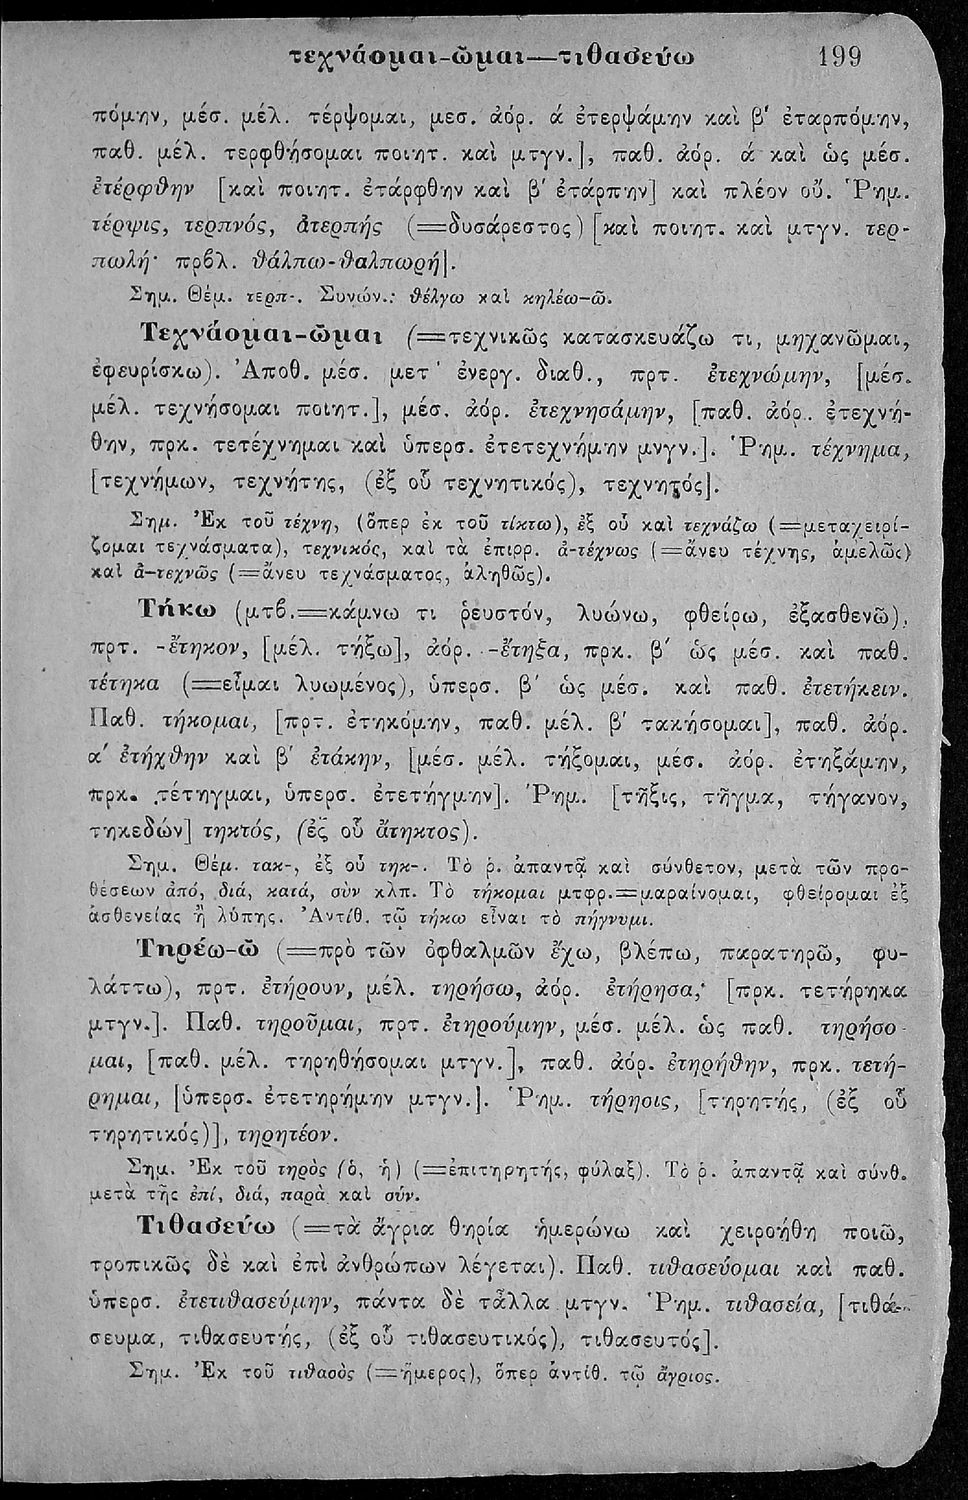 τεχνάομαι-ῶμαι—τιθασεύω 199
πόμην, μέσ. μέλ. τέρψομαι, μεσ. ἀόρ. ά ἐτερψάμην καὶ β' ἐταρπόμην,
παθ. μέλ. τερφθήσομαι ποιητ. καὶ μτγν.], παθ. ἀόρ. ά καὶ ὡς μέσ.
ἐτέρφθην [καὶ ποιητ. ἐτάρφθην καὶ β' ἐτάρπην] καὶ πλέον οὔ. Ῥημ.
τέρψις, τερπνός, ἀτερπής (=δυσάρεστος) [καὶ ποιητ. καὶ μτγν. τερ-
πωλή· πρβλ. θάλπω-θαλπωρή].
Σημ. Θέμ. τερπ-. Συνών.: θέλγω καὶ κηλέω-ῶ.
Τεχνάομαι-ῶμαι (=τεχνικῶς κατασκευάζω τι, μηχανῶμαι,
ἐφευρίσκω). Ἀποθ. μέσ. μετ' ἐνεργ. διαθ., πρτ. ἐτεχνώμην, [μέσ.
μέλ. τεχνήσομαι ποιητ.], μέσ. ἀόρ. ἐτεχνησάμην, [παθ. ἀόρ. ἐτεχνή-
θην, πρκ. τετέχνημαι καὶ ὑπερσ. ἐτετεχνήμην μνγν.]. Ῥημ. τέχνημα,
[τεχνήμων, τεχνήτης, (ἐξ οὗ τεχνητικός), τεχνητός].
Σημ. Ἐκ τοῦ τέχνη, (ὅπερ ἐκ τοῦ τίκτω), ἐξ οὗ καὶ τεχνάζω (=μεταχειρί-
ζομαι τεχνάσματα), τεχνικός, καὶ τὰ ἐπιρρ. ἀ-τέχνως (=ἄνευ τέχνης, ἀμελῶς)
καὶ ἀ-τεχνῶς (=ἄνευ τεχνάσματος, ἀληθῶς).
Τήκω (μτβ.=κάμνω τι ῥευστόν, λυώνω, φθείρω, ἐξασθενῶ),
πρτ. -ἔτηκον, [μέλ. τήξω], ἀόρ. -ἔτηξα, πρκ. β' ὡς μέσ. καὶ παθ.
τέτηκα (=εἶμαι λυωμένος), ὑπερσ. β' ὡς μέσ. καὶ παθ. ἐτετήκειν.
Παθ. τήκομαι, [πρτ. ἐτηκόμην, παθ. μέλ. β' τακήσομαι], παθ. ἀόρ.
α' ἐτήχθην καὶ β' ἐτάκην, [μέσ. μέλ. τήξομαι, μέσ. ἀόρ. ἐτηξάμην,
πρκ. τέτηγμαι, ὑπερσ. ἐτετήγμην]. Ῥημ. [τῆξις, τῆγμα, τήγανον,
τηκεδών] τηκτός, (ἐξ οὗ ἄτηκτος).
Σημ. Θέμ. τακ-, ἐξ οὗ τηκ-. Τὸ ῥ. ἀπαντᾷ καὶ σύνθετον, μετὰ τῶν προ-
θέσεων ἀπό, διά, κατά, σὺν κλπ. Τὸ τήκομαι μτφρ.=μαραίνομαι, φθείρομαι ἐξ
ἀσθενείας ἢ λύπης. Ἀντίθ. τῷ τήκω εἶναι τὸ πήγνυμι.
Τηρέω-ῶ (=πρὸ τῶν ὀφθαλμῶν ἔχω, βλέπω, παρατηρῶ, φυ-
λάττω), πρτ. ἐτήρουν, μέλ. τηρήσω, ἀόρ. ἐτήρησα, [πρκ. τετήρηκα
μτγν.]. Παθ. τηροῦμαι, πρτ. ἐτηρούμην, μέσ. μέλ. ὡς παθ. τηρήσο-
μαι, [παθ. μέλ. τηρηθήσομαι μτγν.], παθ. ἀόρ. ἐτηρήθην, πρκ. τετή-
ρημαι, [ὑπερσ. ἐτετηρήμην μτγν.]. Ῥημ. τήρησις, [τηρητής, (ἐξ οὗ
τηρητικός)], τηρητέον.
Σημ. Ἐκ τοῦ τηρὸς (ὁ, ἡ) (=ἐπιτηρητής, φύλαξ). Τὸ ῥ. ἀπαντᾷ καὶ σύνθ.
μετὰ τῆς ἐπί, διά, παρὰ καὶ σύν.
Τιθασεύω (=τὰ ἄγρια θηρία ἡμερώνω καὶ χειροήθη ποιῶ,
τροπικῶς δὲ καὶ ἐπὶ ἀνθρώπων λέγεται). Παθ. τιθασεύομαι καὶ παθ.
ὑπερσ. ἐτετιθασεύμην, πάντα δὲ τἆλλα μτγν. Ῥημ. τιθασεία, [τιθά-
σευμα, τιθασευτής, (ἐξ οὗ τιθασευτικός), τιθασευτός].
Σημ. Ἐκ τοῦ τιθασὸς (=ἥμερος), ὅπερ ἀντίθ. τῷ ἄγριος.